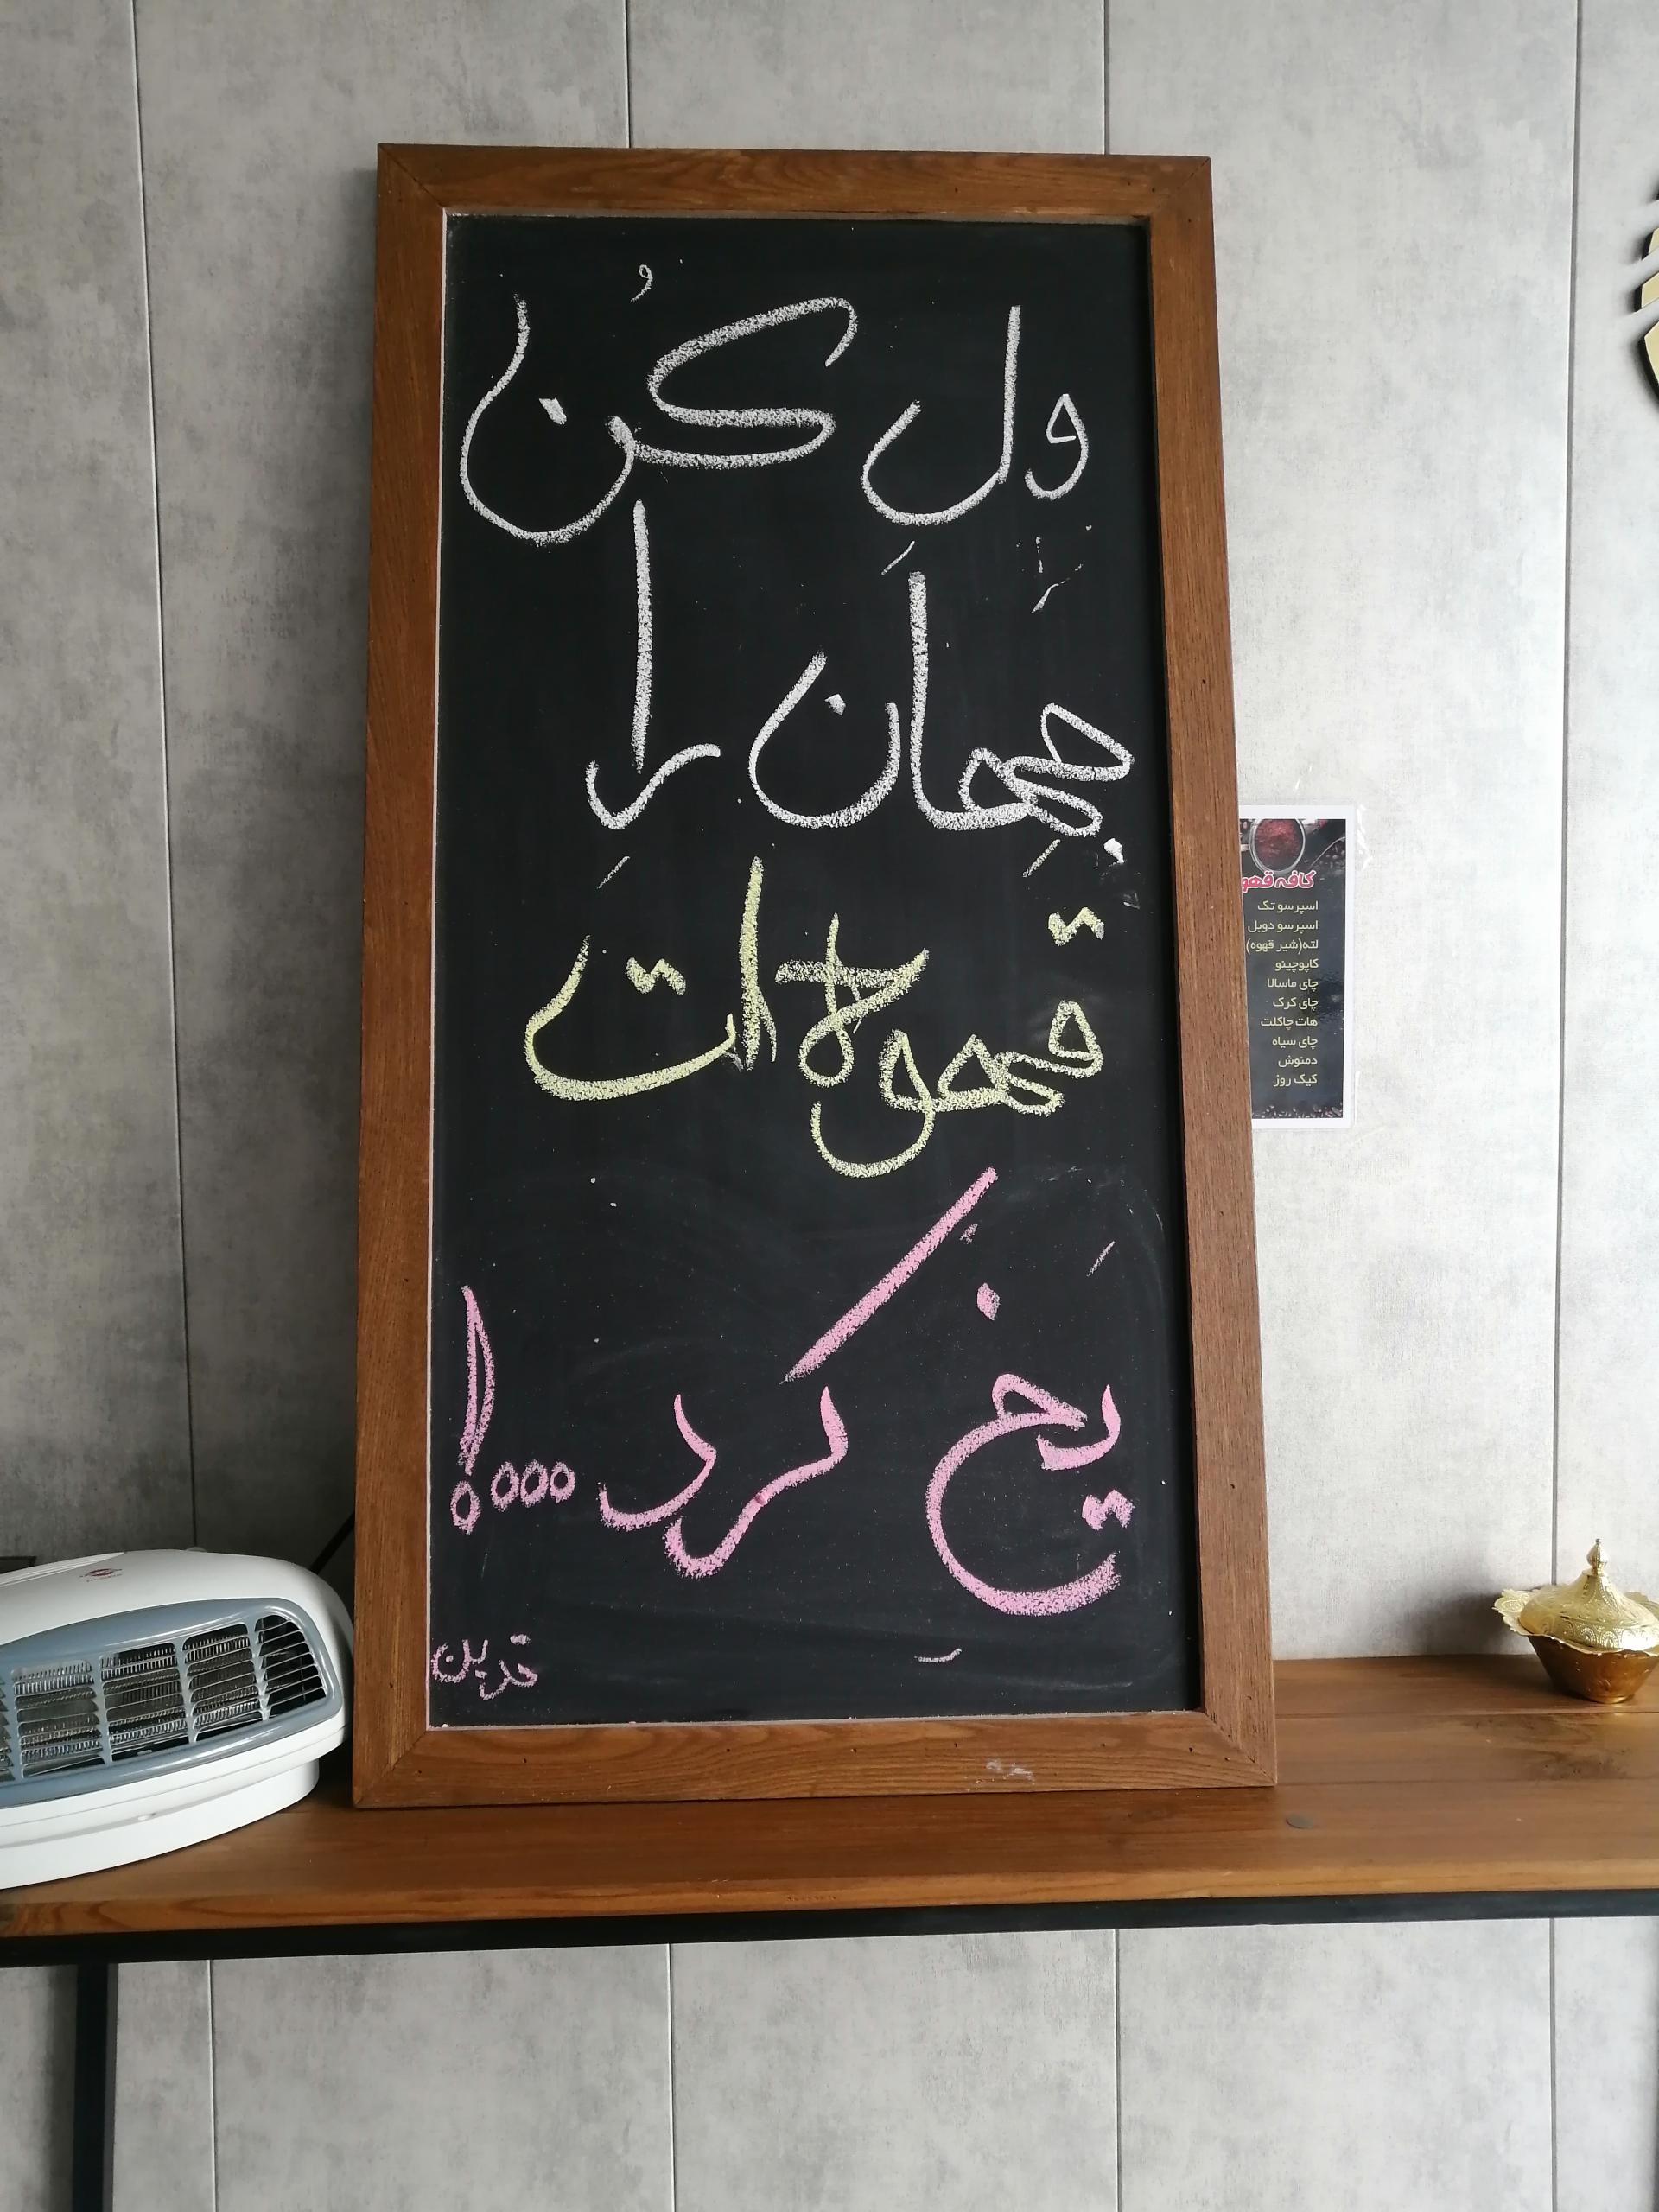 ول کُن
جهان را
قهوه ات
یخ کرد...!
کافه قهو
اسپرسو تک
اسپرسو دوبل
لته(شیر قهوه)
کاپوچینو
چای ماسالا
چای کرک
هات چاکلت
چای سیاه
دمنوش
کیک روز